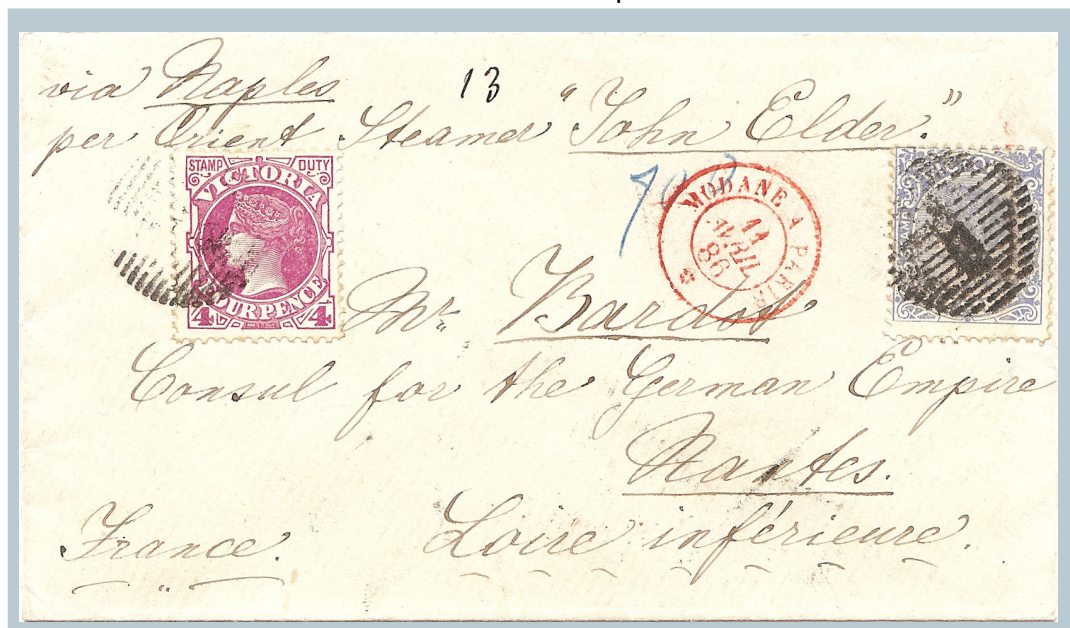 via Naples 13 "John Elder."
per Orient Steamer
STAMP DUTY
VICTORIA
FOURPENCE
4 4
MODANE A PARIS
11
AVRIL
86
STAMP
Mr. Bardot
Consul for the German Empire
Nantes.
France. Loire inférieure.